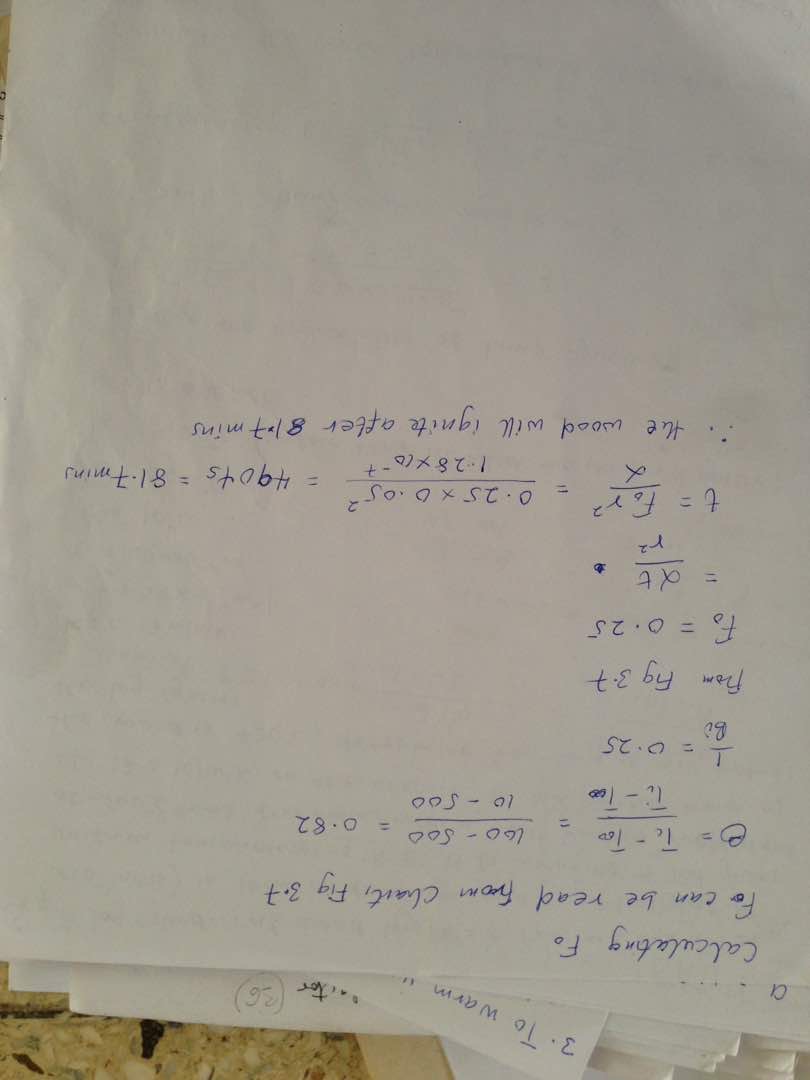 3. To warm
(36)
Calculating Fo
Fo can be read from Chart, Fig 3.7
θ = Ti - T∞ / Ti - T∞ = 100 - 500 / 10 - 500 = 0.82
1/Bi = 0.25
From Fig 3.7
Fo = 0.25
= αt / r²
t = For² / α = 0.25 × 0.05² / 1.28×10⁻⁷ = 4904s = 81.7mins
∴ the wood will ignite after 81.7mins